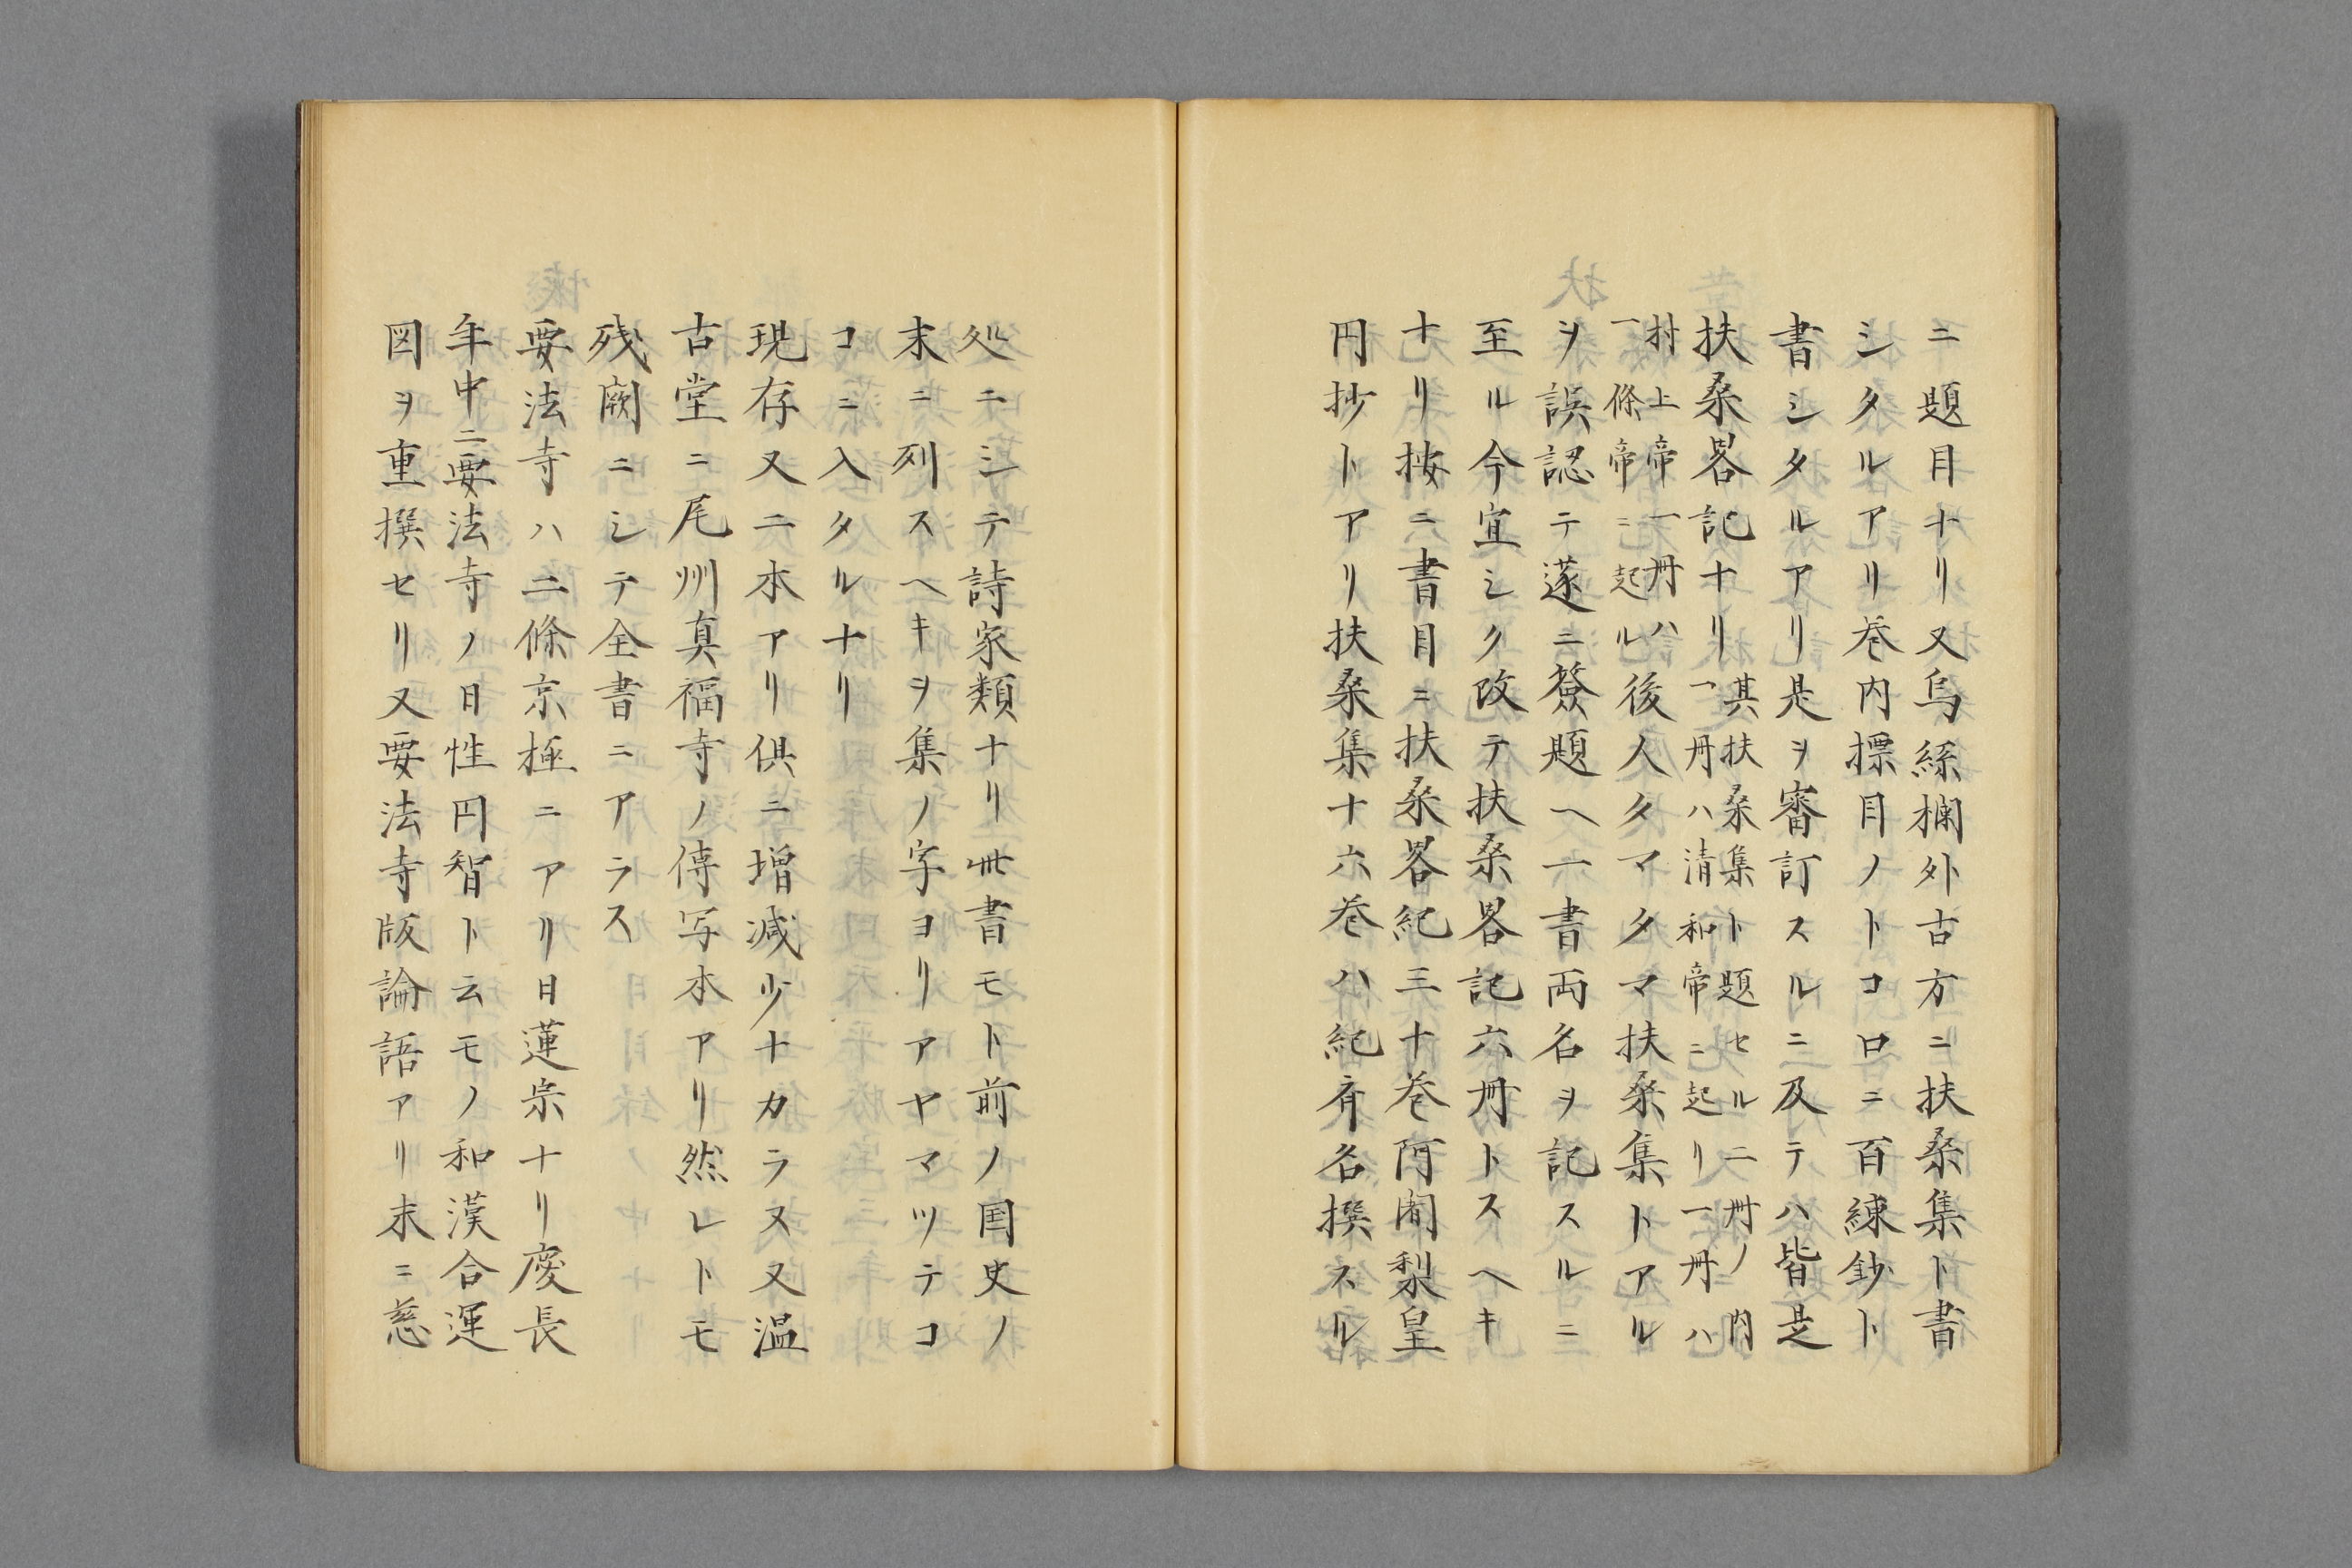 ニ題目ナリ又烏絲欄外古方ニ扶桑集ト書
シタルアリ巻内標目ノトコロニ百練鈔ト
書シタルアリ是ヲ審訂スルニ及テハ皆是
扶桑畧記ナリ
其扶桑集ト題セル二冊ノ内
一冊ハ清和帝ニ起リ一冊ハ
村上帝一冊ハ
一條帝ニ起ル
後人タマタマ扶桑集トアル
ヲ誤認テ遂ニ簽題ヘ一書両名ヲ記スルニ
至ル今宜シク改テ扶桑畧記六冊トスヘキ
ナリ按ニ書目ニ扶桑畧紀三十巻阿闍梨皇
円抄トアリ扶桑集十六巻ハ紀斉名撰スル
処ニシテ詩家類ナリ此書モト前ノ国史ノ
末ニ列スヘキヲ集ノ字ヨリアヤマツテコ
コニ入タルナリ
現存又二本アリ倶ニ増減少ナカラス又温
古堂ニ尾州真福寺ノ傳写本アリ然レトモ
残闕ニシテ全書ニアラス
要法寺ハ二條京極ニアリ日蓮宗ナリ慶長
年中ニ要法寺ノ日性円智ト云モノ和漢合運
図ヲ重撰セリ又要法寺版論語アリ末ニ慈